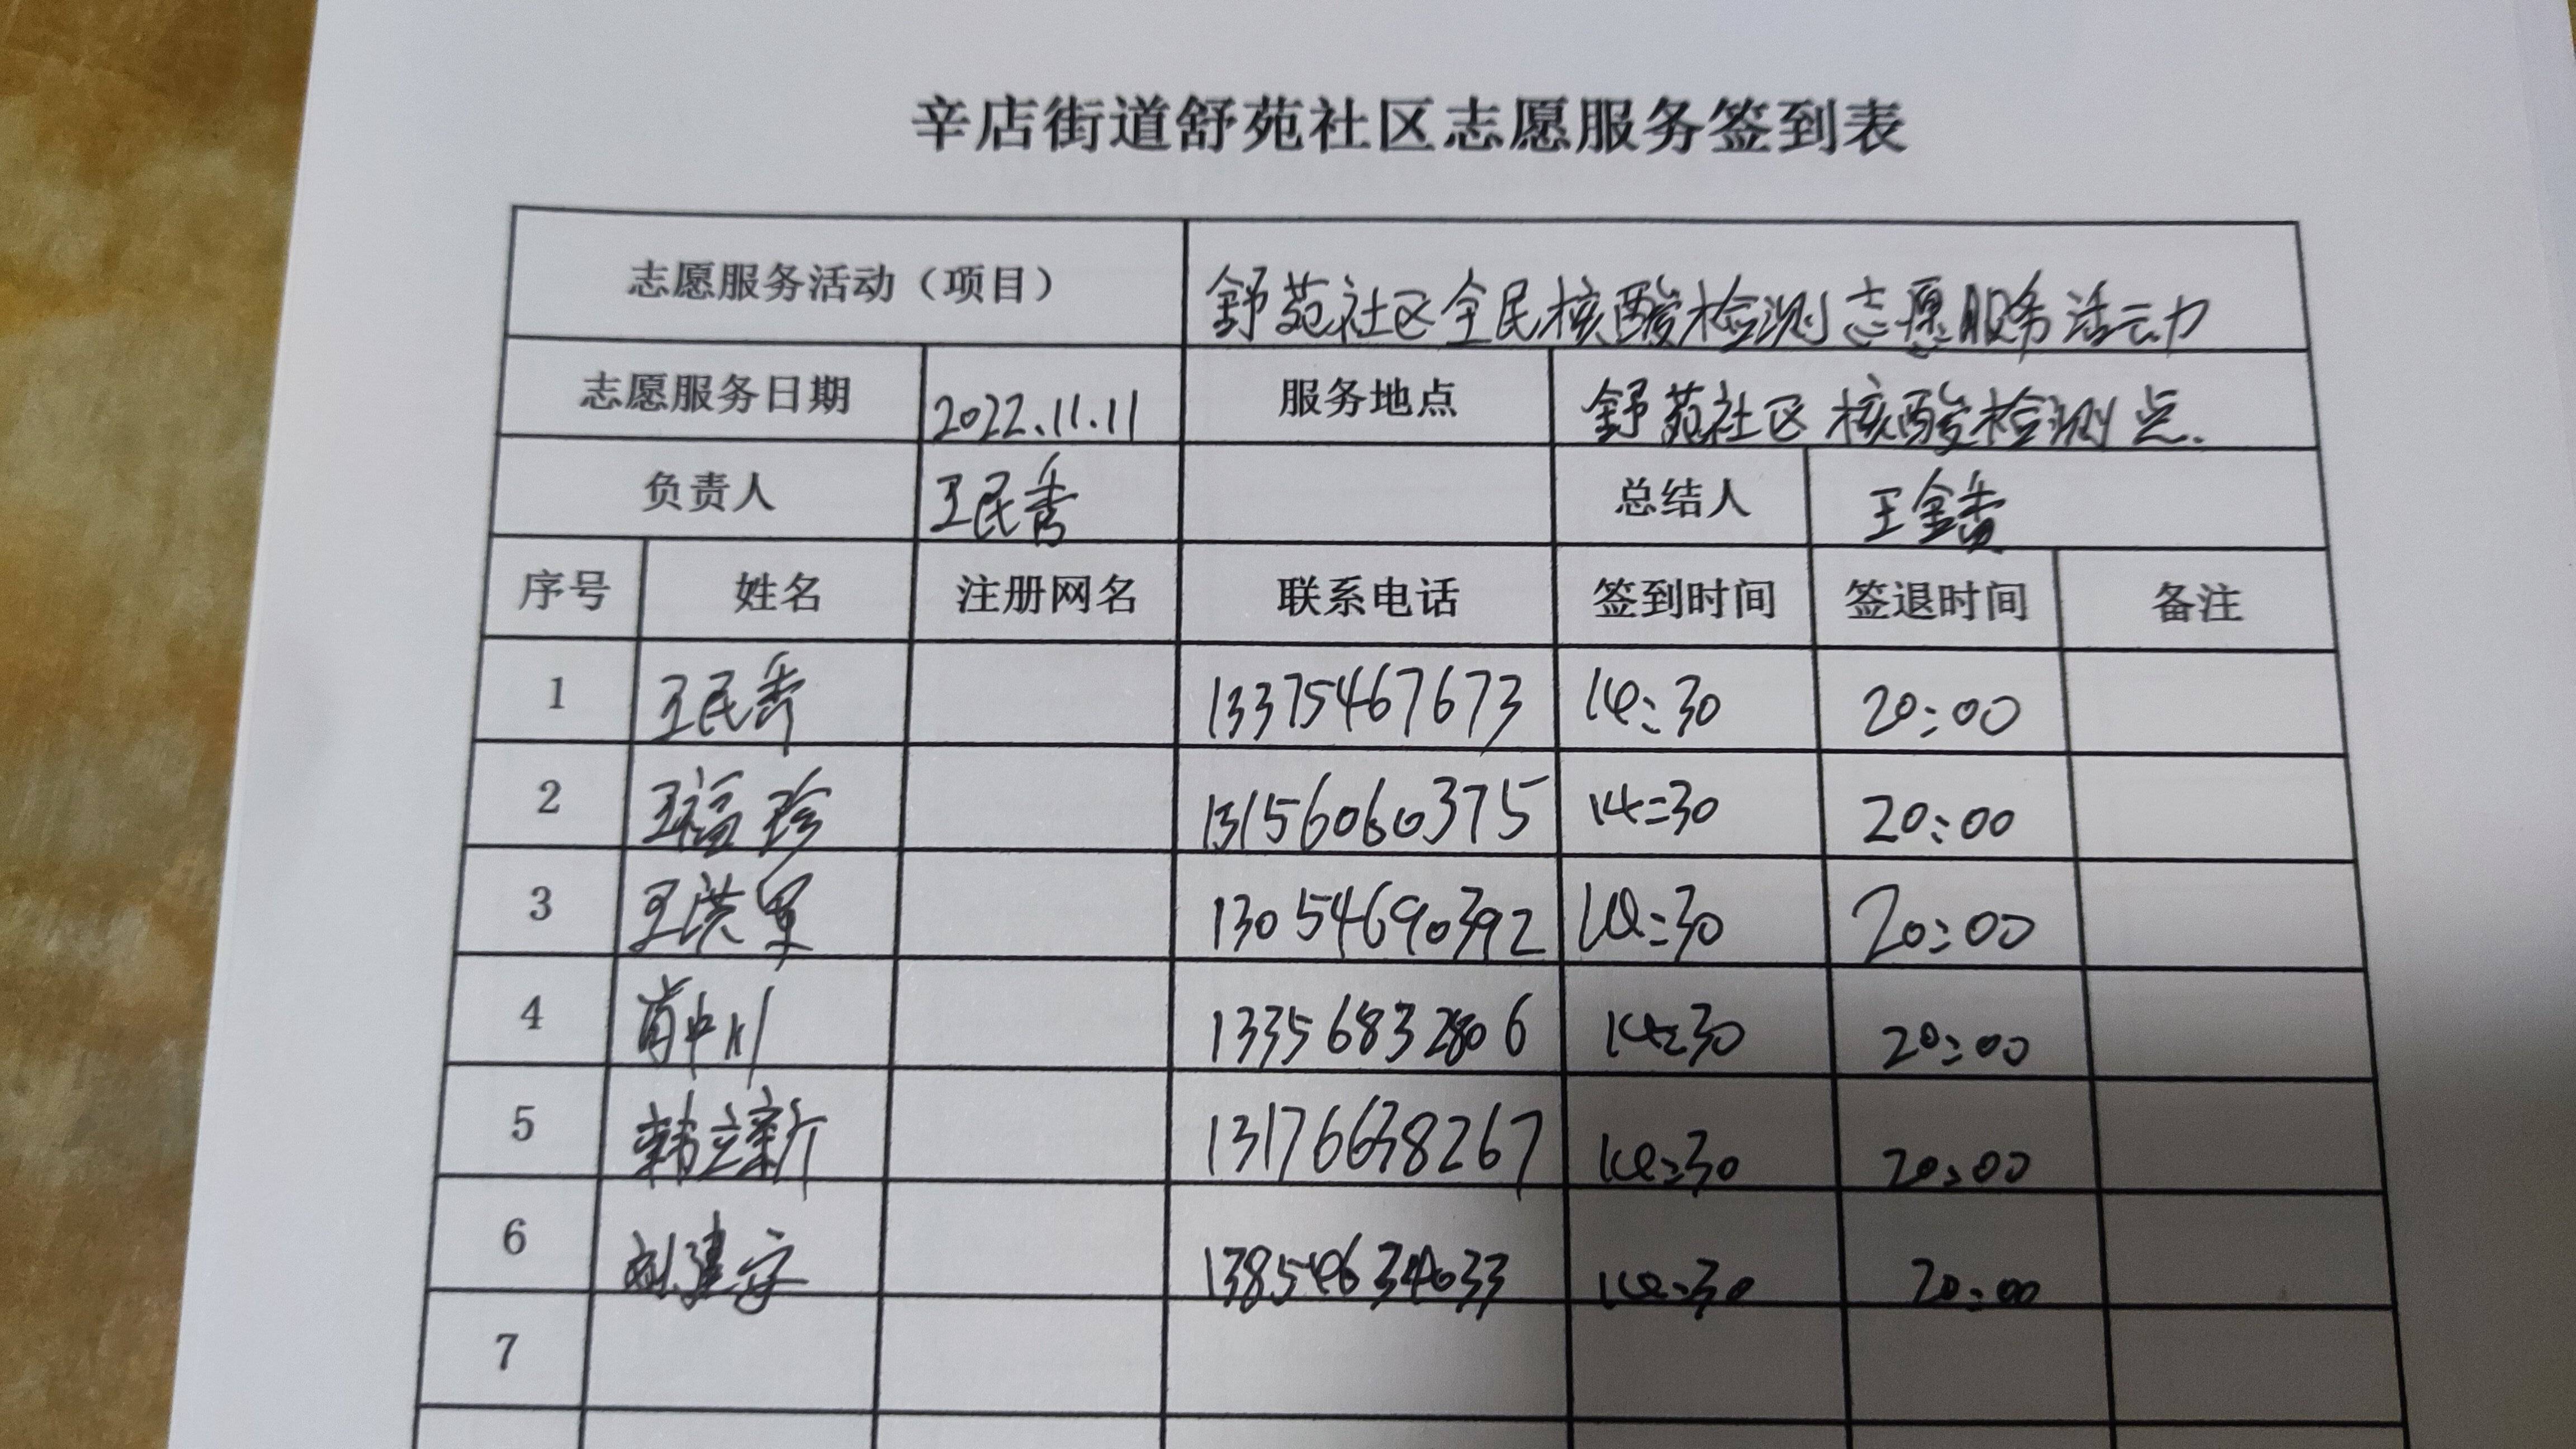 辛店街道舒苑社区志愿服务签到表
志愿服务活动（项目） 舒苑社区全民核酸检测志愿服务活动
志愿服务日期 2022.11.11 服务地点 舒苑社区核酸检测点.
负责人 王民秀 总结人 王金
序号 姓名 注册网名 联系电话 签到时间 签退时间 备注
1 王民秀 13375467673 14:30 20:00
2 王福珍 13156060375 14:30 20:00
3 王洪军 13054690392 14:30 20:00
4 肖中川 13356832806 14:30 20:00
5 韩立新 13176638267 14:30 20:00
6 刘建安 13854634033 14:30 20:00
7